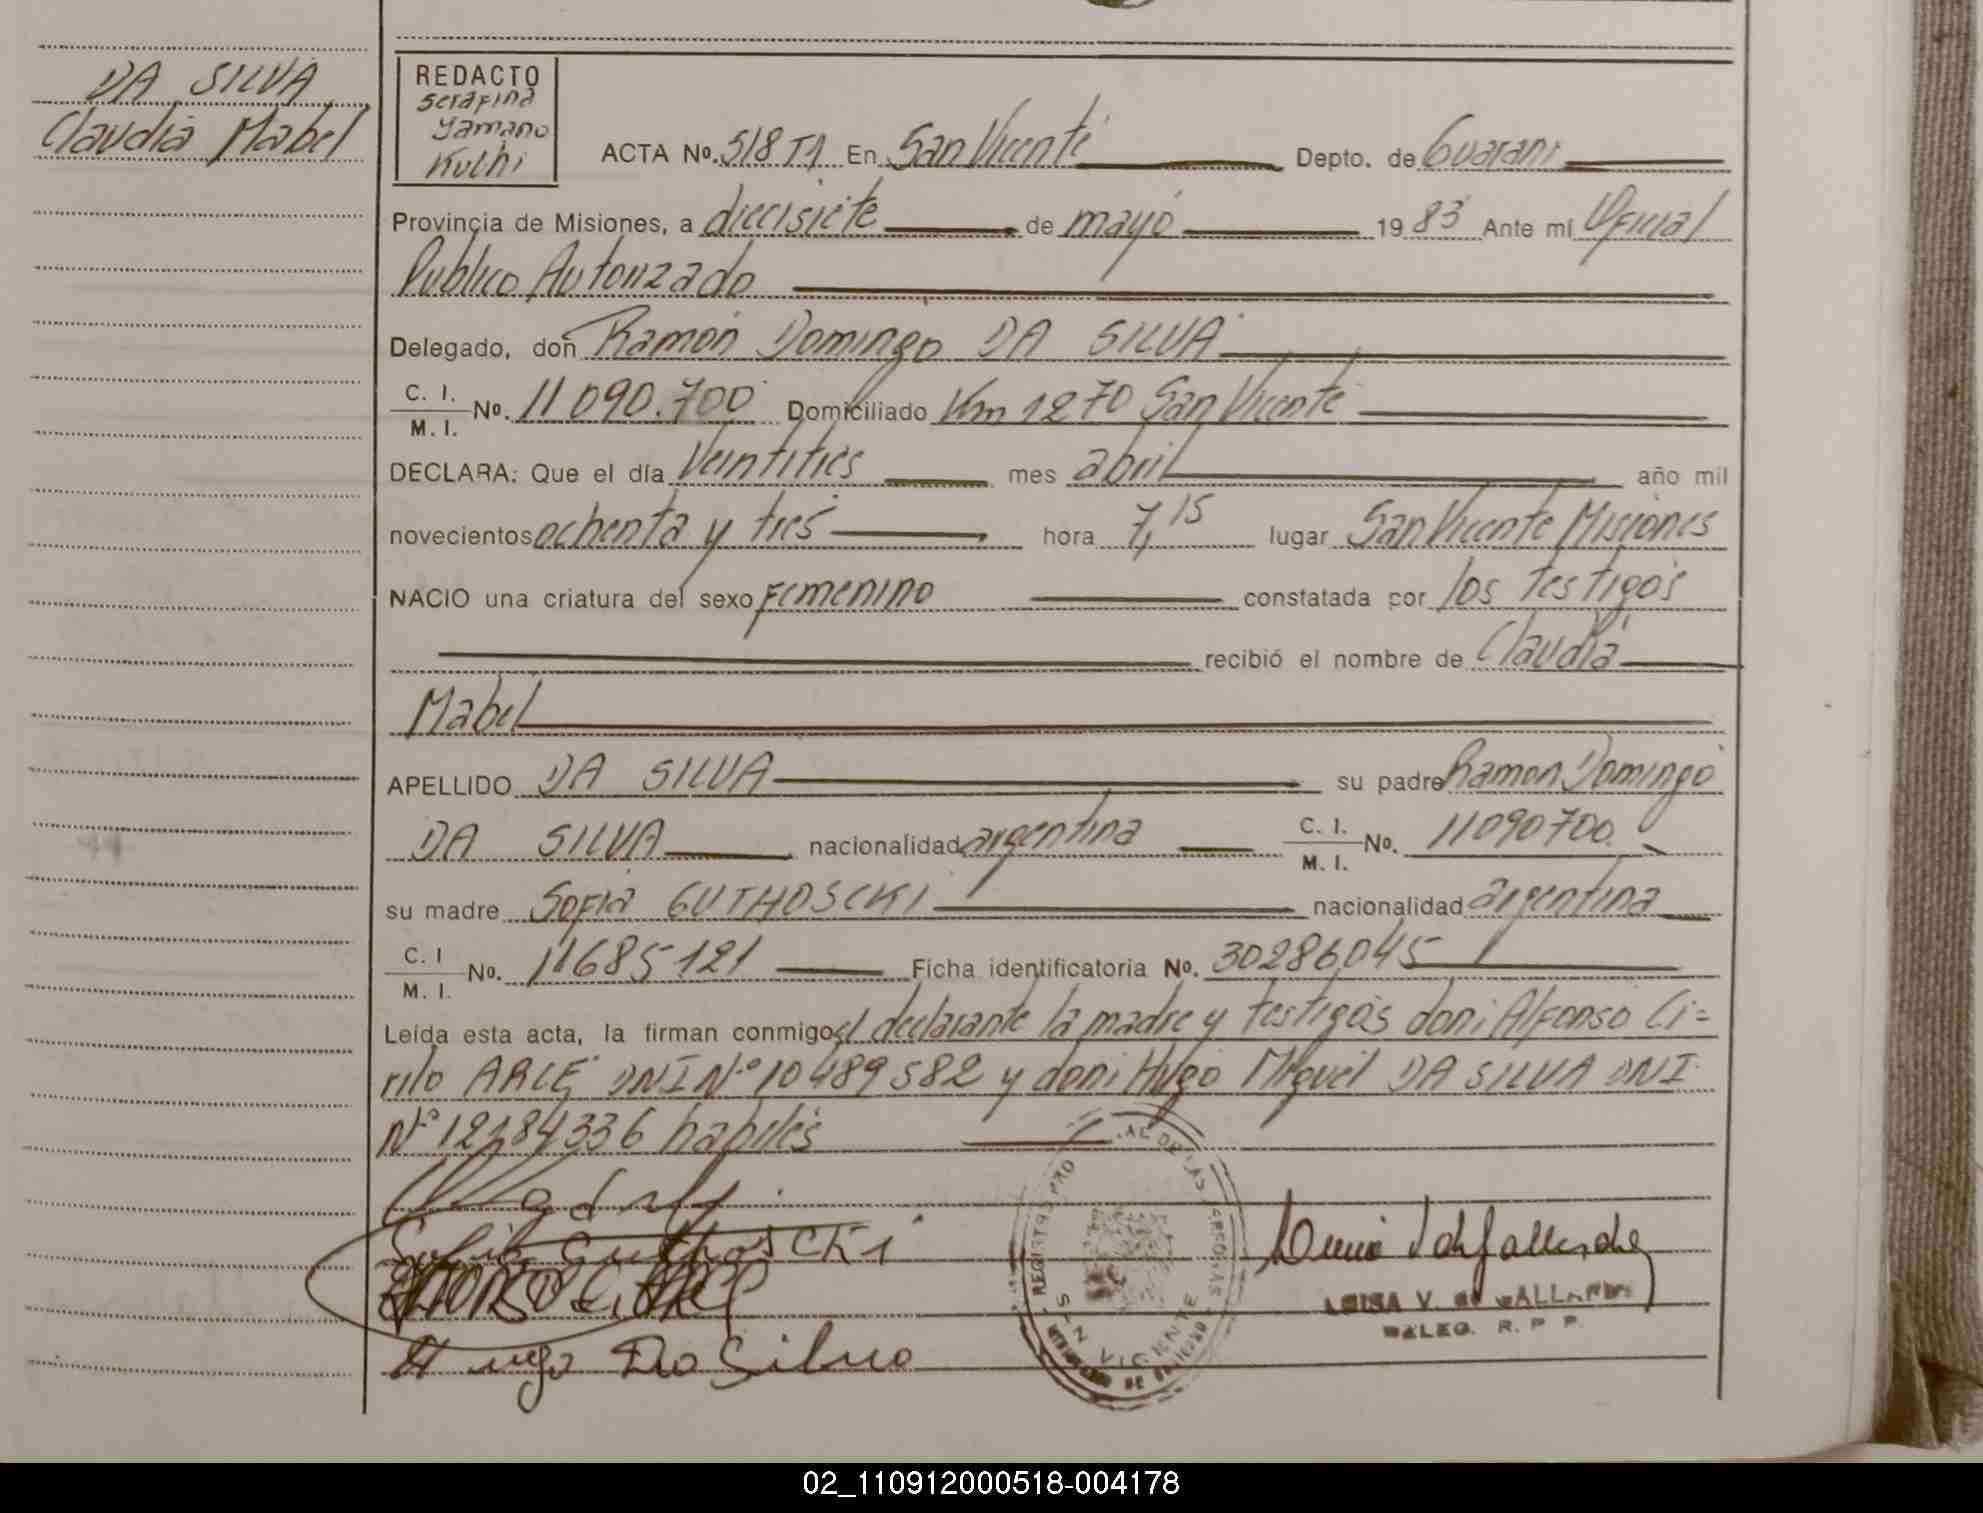 DA SILVA
Claudia Mabel
REDACTO
Serafina
Yamano
Kuchi
ACTA No. 518 T1 En San Vicente Depto. de Guarani
Provincia de Misiones, a diecisiete de mayo 19 83 Ante mi Oficial
Publico Autorizado
Delegado, don Ramón Domingo DA SILVA
C. I.
M. I. No. 11 090.700 Domiciliado Km 1270 San Vicente
DECLARA: Que el día Veintitres mes abril año mil
novecientos ochenta y tres hora 7,15 lugar San Vicente Misiones
NACIO una criatura del sexo Femenino constatada por los testigos
recibió el nombre de Claudia
Mabel
APELLIDO DA SILVA su padre Ramon Domingo
DA SILVA nacionalidad argentina C. I.
M. I. No. 11090700
su madre Sofia GUTHOSCKI nacionalidad argentina
C. I
M. I. No. 11685121 Ficha identificatoria No. 30286045
Leída esta acta, la firman conmigo el declarante la madre y testigos don: Alfonso Ci=
rilo ARCE DNI Nº 10489582 y don: Hugo Miguel DA SILVA DNI
Nº 12184336 habiles
Sofia Guthoscki
Hugo Da Silva
SAN VICENTE
LUISA V. DE GALLARDO
DELEG. R. P. P.
02_110912000518-004178